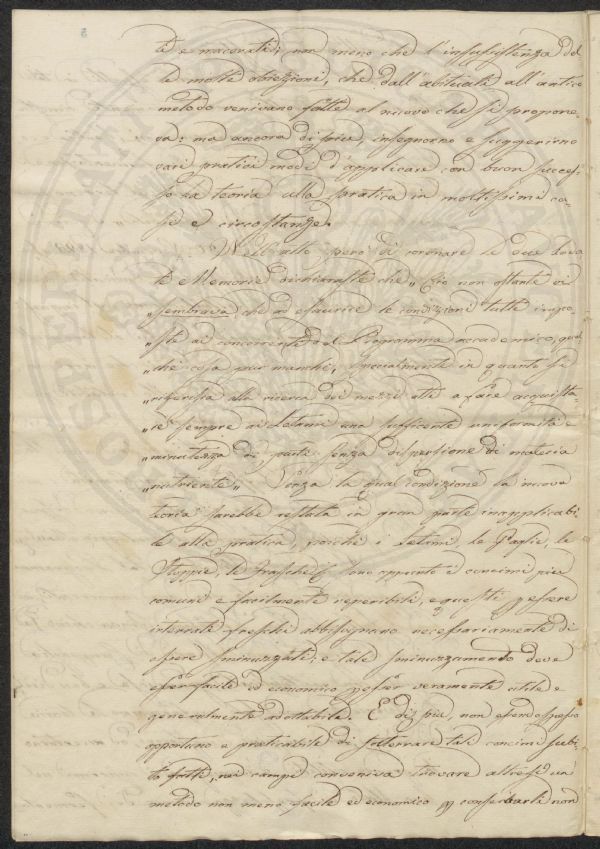 ti e macerati; non meno che l'insussistenza del
le molte obiezzioni, che dall'abituati all'antico
metodo venivano fatte al nuovo che si propone,
va; ma ancora di più, insegnorno e suggerirno
varj pratici modi d'applicare con buon succes,
so la teoria alla pratica in moltissimi ca,
si e circostanze.
Nell'atto però di coronare le due
te Memorie dichiaraste che „ Ciò non ostante vi
„sembrava che ad esaurire le condizioni tutte impo
„ste ai concorrenti del Programma accademico, qual
„che cosa pur manchi, specialmente in quanto si
„riferisce alla ricerca dei mezzi atti a fare acquista,
„re sempre ai letami una sufficente uniformità e
„minutezza di parti senza dispersione di materia
„nutriente„ Senza la qual condizione la nuova
teoria sarebbe restata in gran parte inapplicabi,
le alla pratica, poichè i letami le Paglie, le
Stoppie, le Frasche &c. sono appunto i concimi più
comuni e facilmente reperibili, e questi p essere
interrati freschi abbisognano necessariamente di
essere sminuzzati; e tale sminuzzamento deve
esser facile ed economico p esser veramente utile e
generalmente adottabile. E di più, non essendo spesso
opportuno e praticabile di sotterrare tali concimi subi
to fatti, nei campi conveniva trovare altresì un
metodo non meno facile ed economico p conservarli non